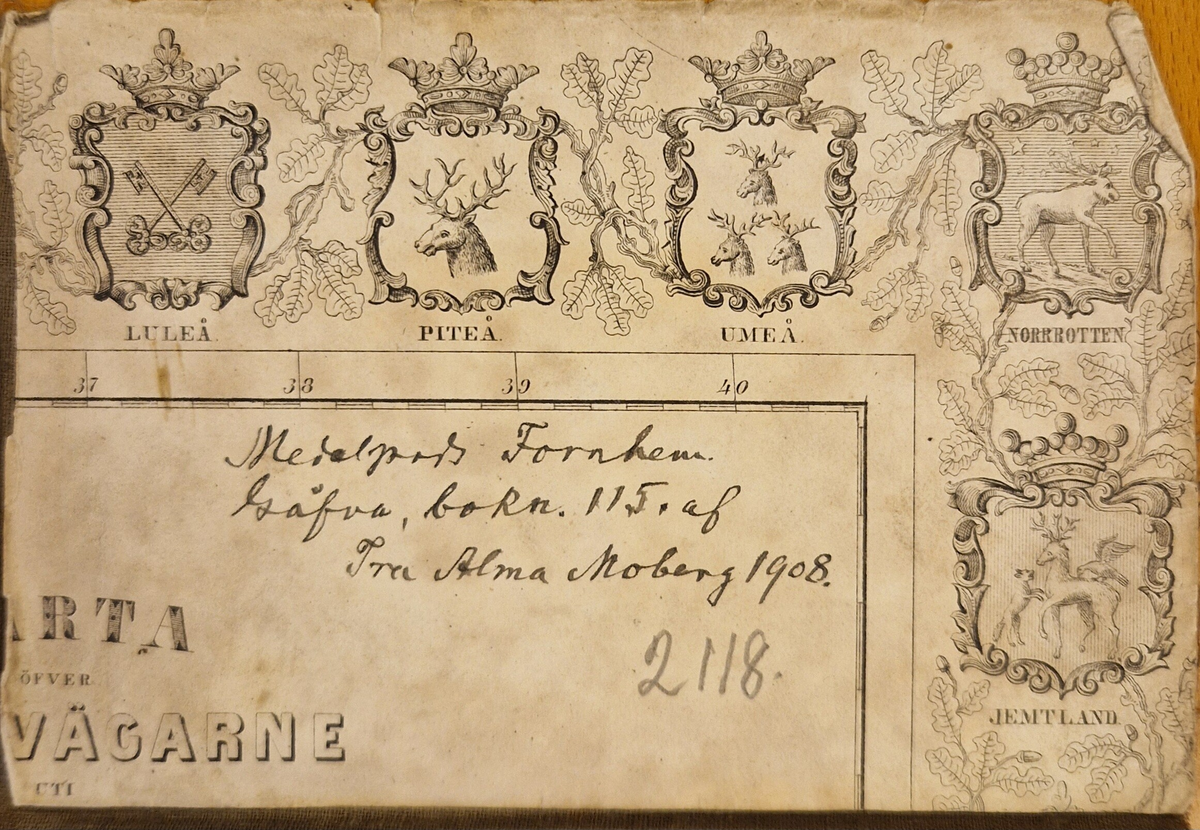 LULEÅ.
PITEÅ.
UMEÅ.
NORRBOTTEN
37
38
39
40
Medelpads Fornhem.
Gåfva, bokn. 115. af
Fru Alma Moberg 1908.
2118.
ARTA
ÖFVER
VÄGARNE
UTI
JEMTLAND.